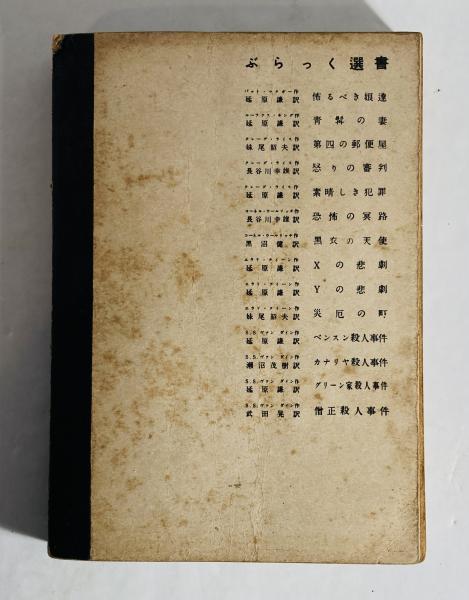 ぶらっく選書
パット・マクガー作
延原謙訳 怖るべき娘達
ルーファス・キング作
延原謙訳 青髯の妻
クレーグ・ライス作
妹尾韶夫訳 第四の郵便屋
クレーグ・ライス作
長谷川幸雄訳 怒りの審判
クレーグ・ライス作
延原謙訳 素晴しき犯罪
コーネル・ウールリッチ作
長谷川幸雄訳 恐怖の冥路
コーネル・ウールリッチ作
黒沼健訳 黒衣の天使
エラリ・クイーン作
延原謙訳 Xの悲劇
エラリ・クイーン作
延原謙訳 Yの悲劇
エラリ・クイーン作
妹尾韶夫訳 災厄の町
S.S.ヴァン ダイン作
延原謙訳 ベンスン殺人事件
S.S.ヴァン ダイン作
瀬沼茂樹訳 カナリヤ殺人事件
S.S.ヴァン ダイン作
延原謙訳 グリーン家殺人事件
S.S.ヴァン ダイン作
武田晃訳 僧正殺人事件